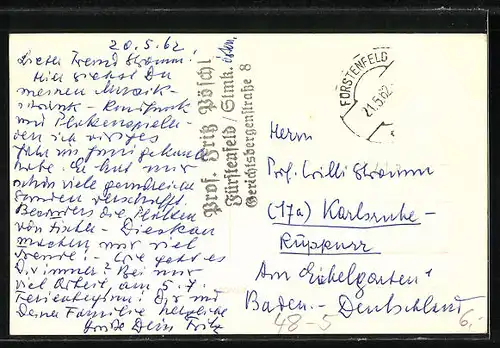 20.5.62.
Lieber Freund Stromm!
Hier siehst Du
meinen Musik-
schrank - Rundfunk
und Plattenspieler,
den ich voriges
Jahr im Juni gekauft
habe. Er hat mir
schon viele genußreiche
Stunden verschafft.
Besonders die Platten
von Fischer - Dieskau
machten mir viel
Freude! - Wie geht es
Dir immer? Bei mir
viel Arbeit, am 5.7.
Ferienbeginn! Dir und
Deiner Familie herzliche
Grüße Dein Fritz
Prof. Fritz Pöschl
Fürstenfeld / Stmk.
Gerichtsbergenstraße 8
FÜRSTENFELD
21.5.62
Herrn
Prof. Willi Stromm
(17a) Karlsruhe-
Rüppurr
Am Eichelgarten 1
Baden - Deutschland
48-5
6.-